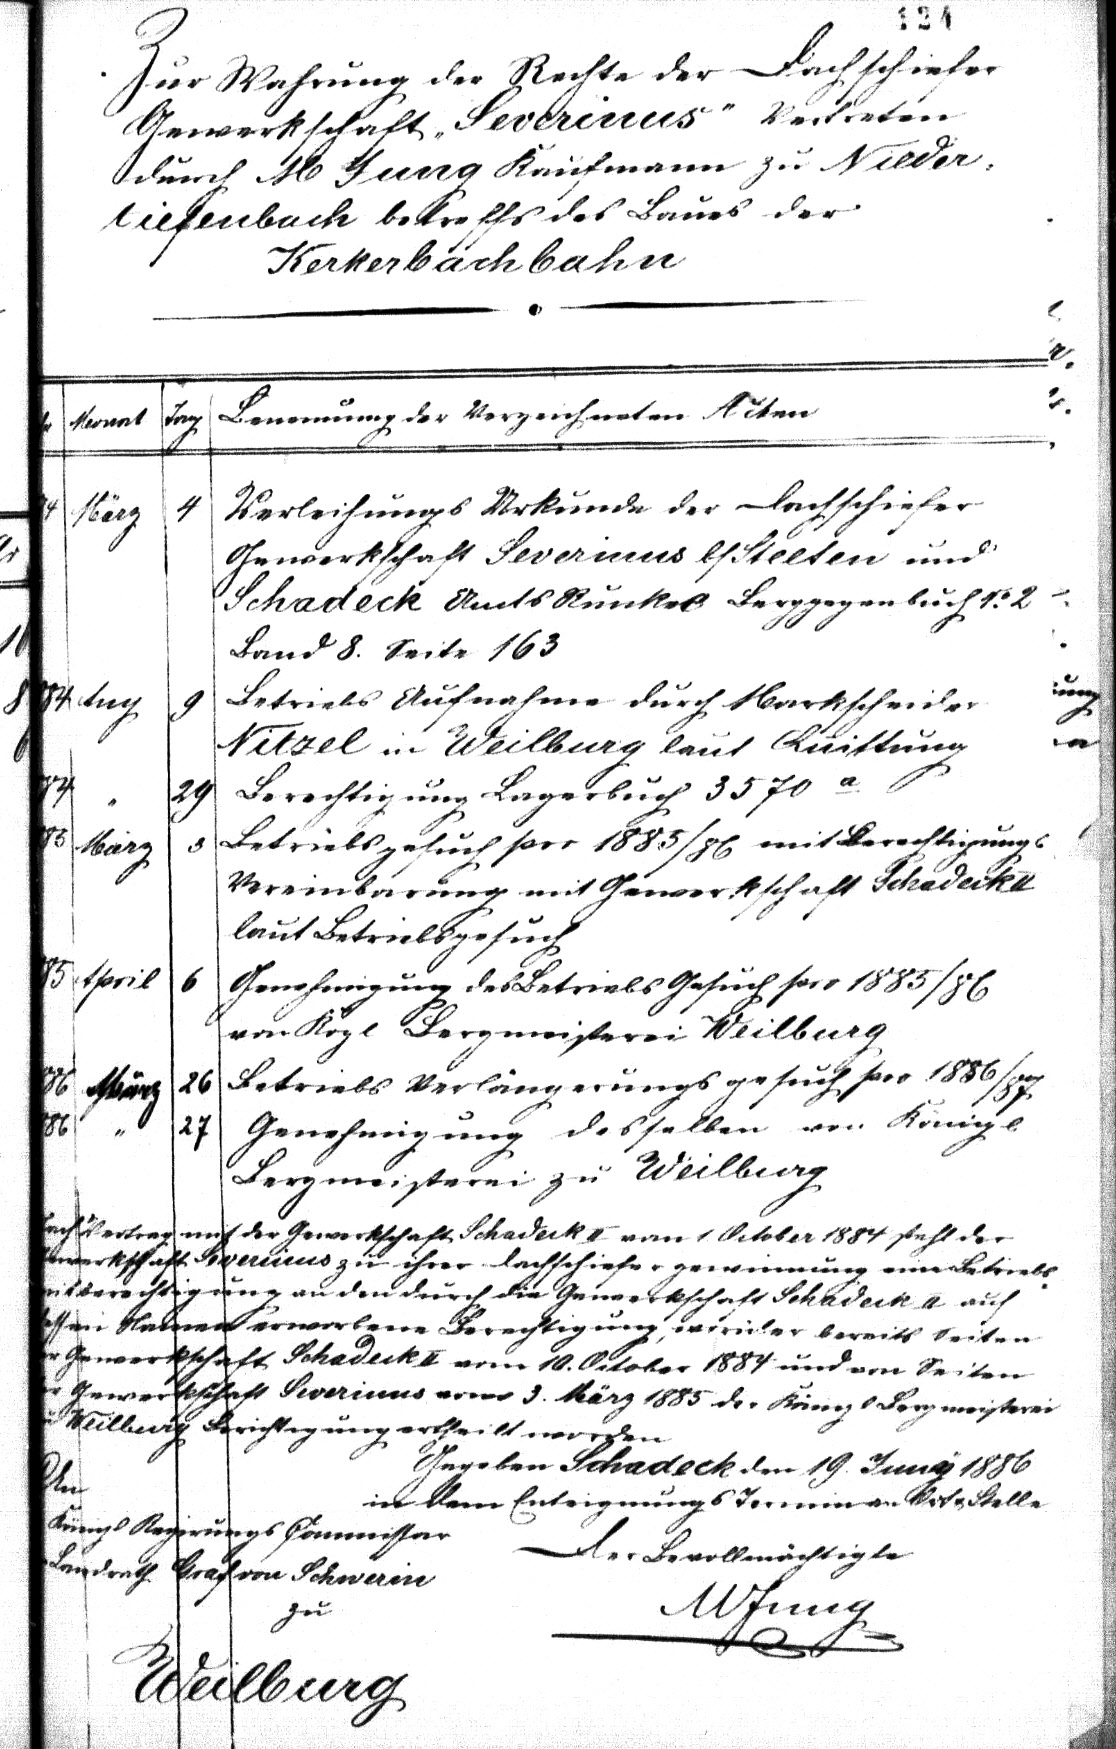 124
Zur Wahrung der Rechte der Dachschiefer
Gewerkschaft „Severinus" Vertreten
durch M Jung Kaufmann zu Nieder-
tiefenbach betreffs des Baues der
Kerkerbachbahn
Monat Tag Benennung der Verzeichneten Akten
84 März 4 Verleihungs Urkunde der Dachschiefer
Gewerkschaft Severinus b/Steeten und
Schadeck Amts Runkel Berggegenbuch No 2
Band 8. Seite 163
884 Aug 9 Betriebs Aufnahme durch Markscheider
Nitzel in Weilburg laut Quittung
84 " 29 Berechtigung Lagerbuch 3570 a
85 März 3 Betriebsgesuch pro 1885/86 mit Berechtigungs
Vereinbarung mit Gewerkschaft Schadeck II
laut Betriebsgesuch
85 April 6 Genehmigung des Betriebs Gesuch pro 1885/86
von Kögl Bergmeisterei Weilburg
86 März 26 Betriebs Verlängerungsgesuch pro 1886/87
86 " 27 Genehmigung desselben von Königl
Bergmeisterei zu Weilburg
Nach Vertrag mit der Gewerkschaft Schadeck II vom 1 October 1884 steht der
Gewerkschaft Severinus zu ihrer Dachschiefergewinnung eine Betriebs
berechtigung an den durch die Gewerkschaft Schadeck II auf
dessen Namen erworbene Berechtigung, bereits Seiten
der Gewerkschaft Schadeck II vom 10. October 1884 und von Seiten
der Gewerkschaft Severinus vom 3. März 1885 der Königl Bergmeisterei
Weilburg Berichtigung ertheilt worden
Gegeben Schadeck den 19. Juny 1886
in dem Enteignungs Termin an Ort & Stelle
An
Königl Regirungs Commissar
Der Bevollmächtigte
Landrath Graf von Schwerin
M Jung
zu
Weilburg